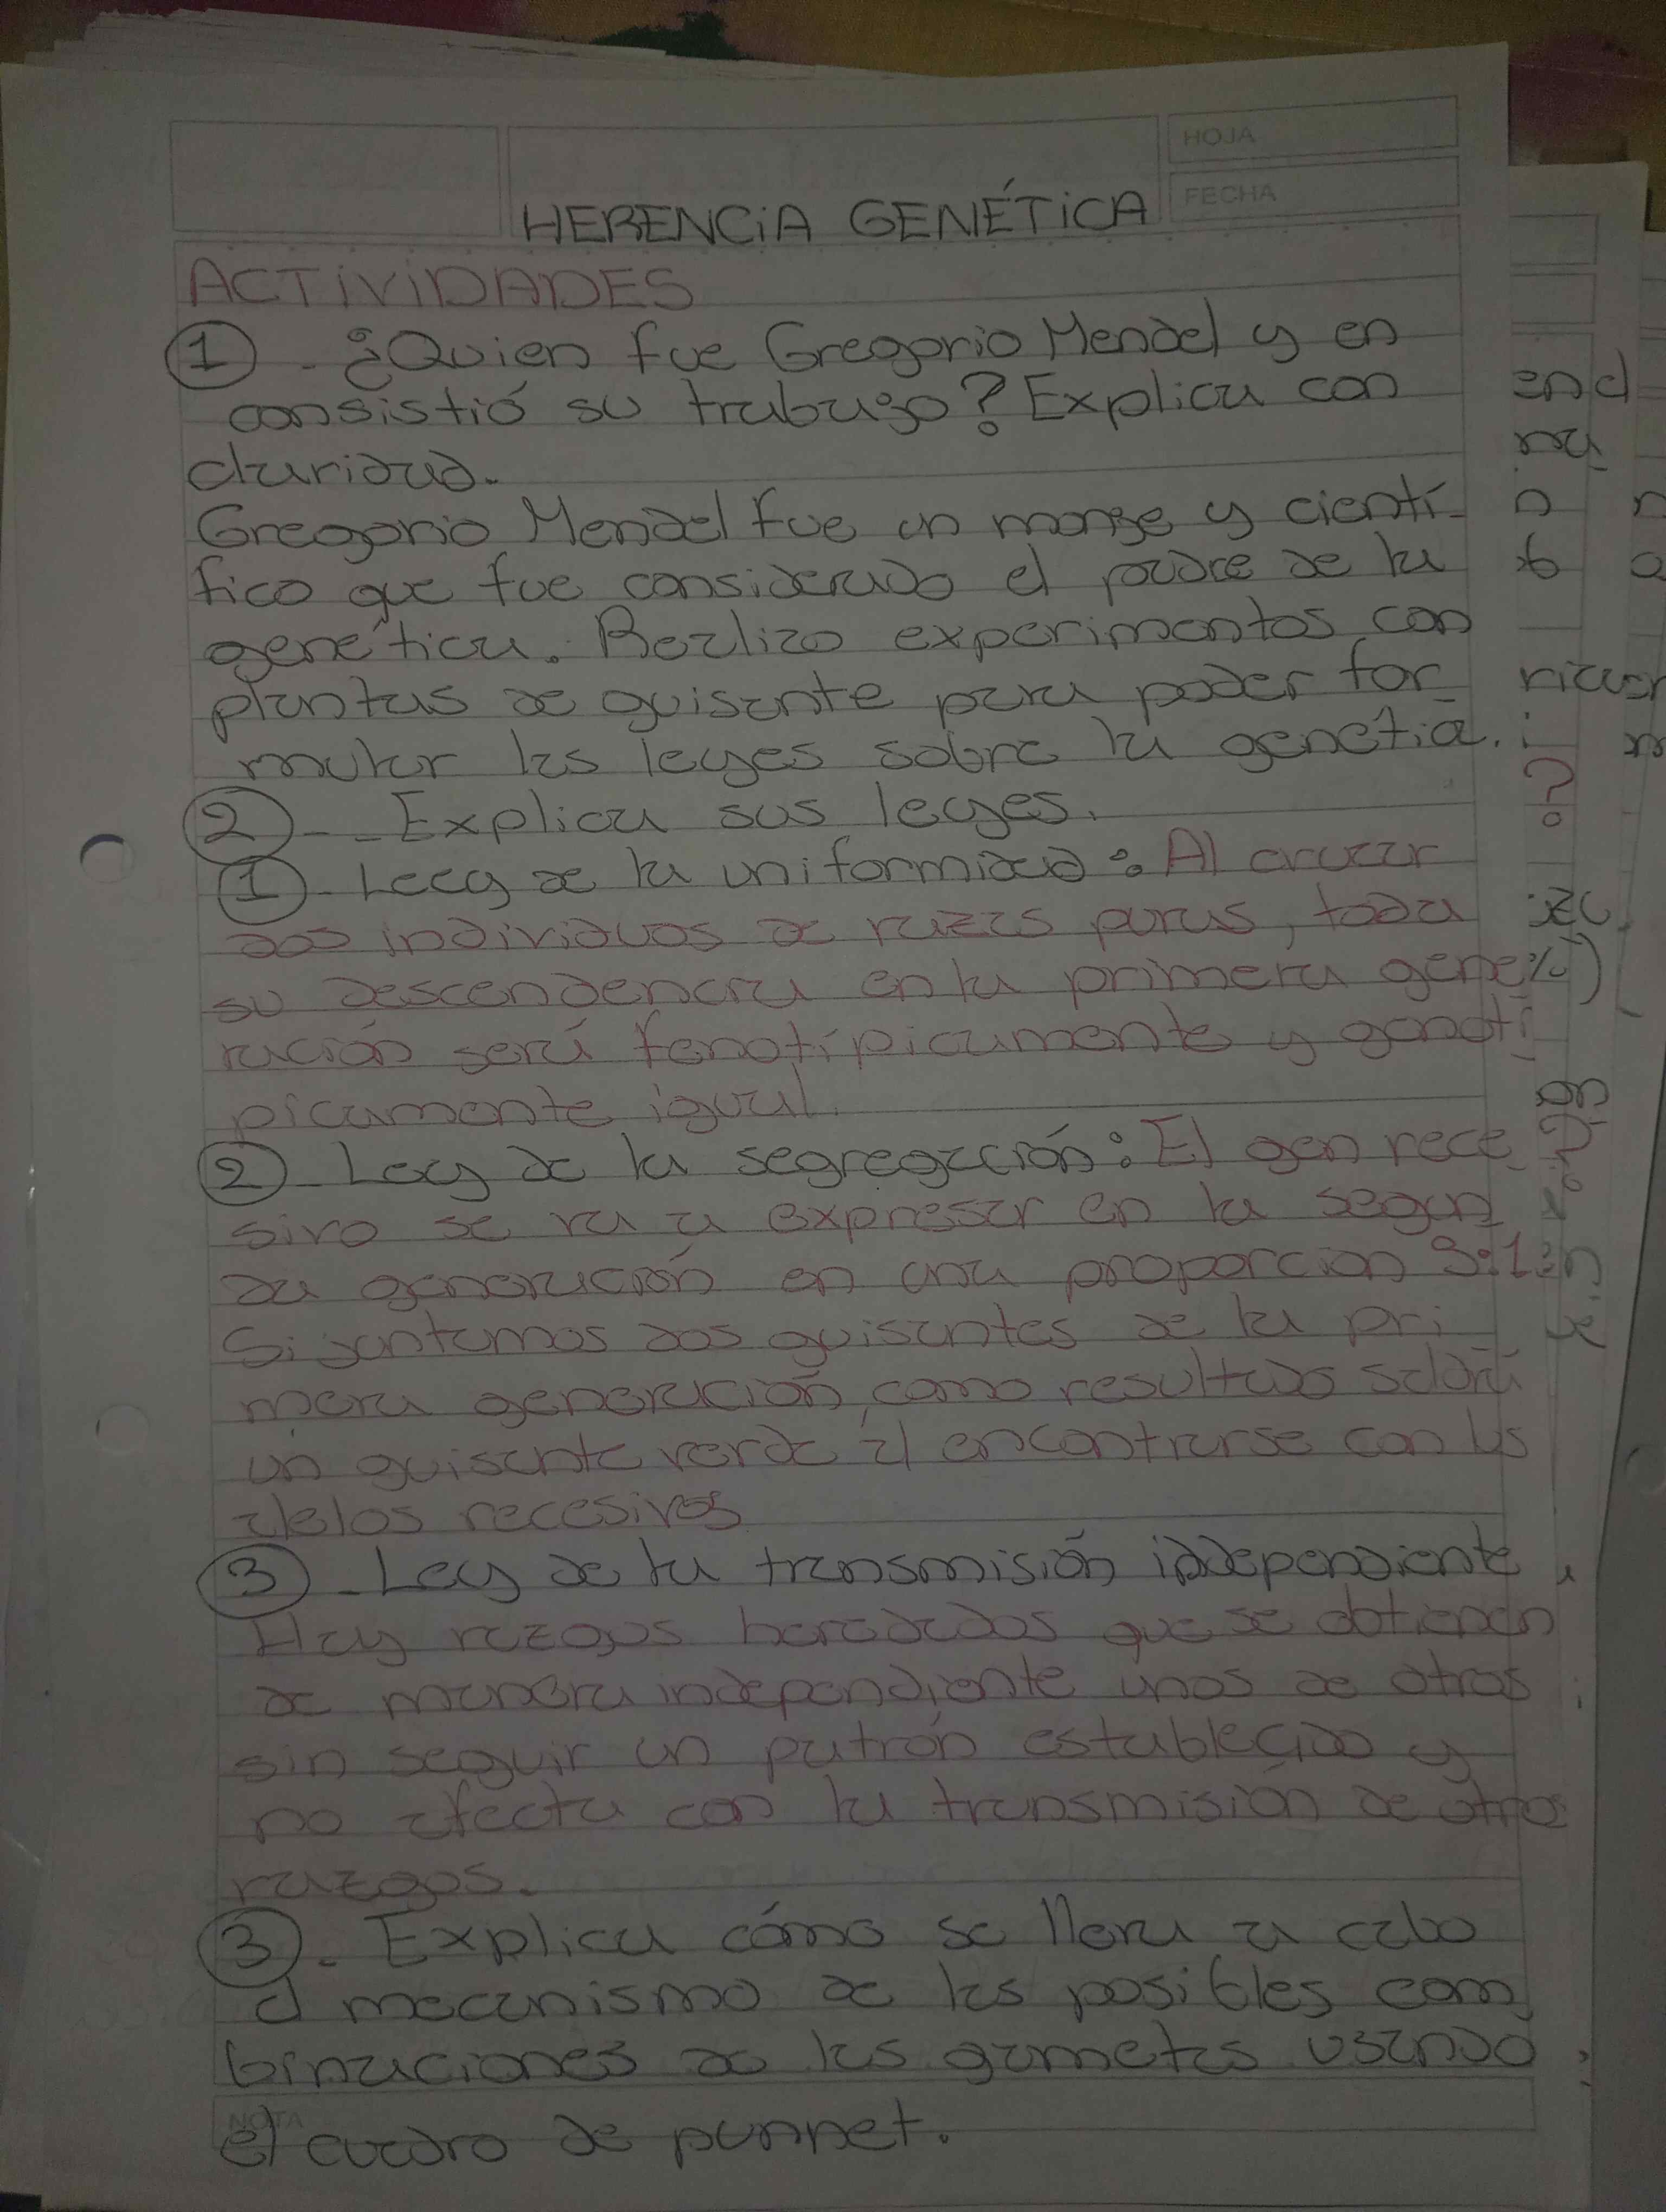 HOJA
FECHA
HERENCIA GENÉTICA
ACTIVIDADES
1. ¿Quien fue Gregorio Mendel y en
consistió su trabajo? Explica con
claridad.
Gregorio Mendel fue un monge y cientí-
fico que fue considerado el padre de la
genética. Realizo experimentos con
plantas de guisante para poder for-
mular las leyes sobre la genétia.
2 - - Explica sus leyes.
1 - Leey de la uniformidad: Al cruzar
dos individuos de razas puras, toda
su descendencia en la primera gene
ración será fenotípicamente y genotí-
picamente igual.
2 - Ley de la segregación: El gen rece-
sivo se va a expresar en la segun
da generación en una proporcion 3:1
Si juntamos dos guisantes de la pri-
mera generación, como resultado saldrá
un guisante verde al encontrarse con los
alelos recesivos
3 - Ley de la transmisión independiente
Hay razgos heredados que se obtienen
de manera independiente unos de otros
sin seguir un patrón establecido y
no afecta con la transmisión de otros
razgos.
3. Explica cómo se lleva a cabo
el mecanismo de las posibles com
binaciones de los gametos usando
NOTA
el cuadro de punnet.